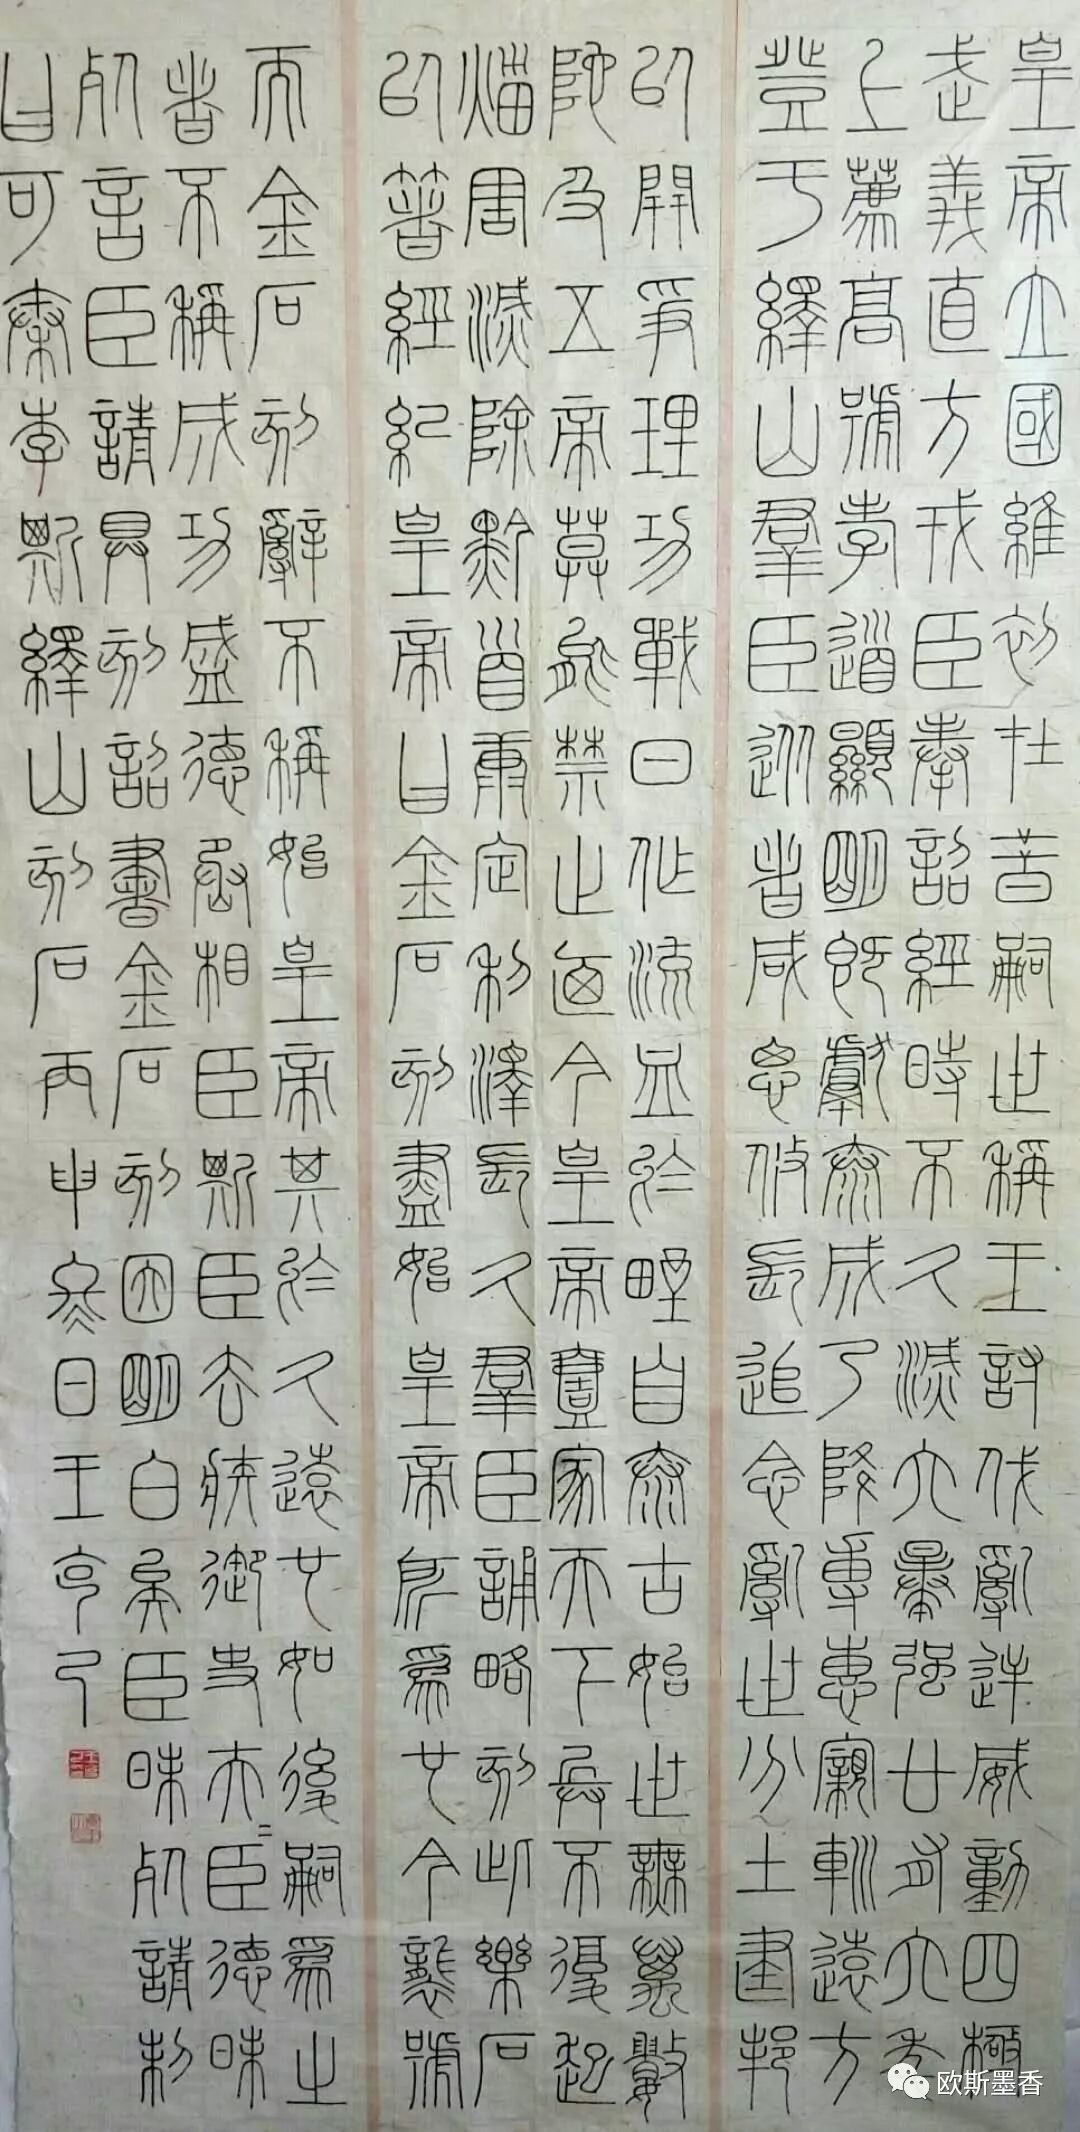 皇帝立國維初在昔嗣世稱王討伐亂逆威動四極
武義直方戎臣奉詔經時不久滅六暴強廿有六年
上薦高號孝道顯明既獻泰成乃降專惠寴輈遠方
登于繹山羣臣從者咸思攸長追念亂世分土建邦
以開爭理功戰日作流血於野自泰古始世無萬數
陀及五帝莫能禁止廼今皇帝壹家天下兵不復起
災害滅除黔首康定利澤長久羣臣誦略刻此樂石
以著經紀皇帝曰金石刻盡始皇帝所為也今襲號
而金石刻辭不稱始皇帝其於久遠也如後嗣為之
者不稱成功盛德丞相臣斯臣去疾御史夫=臣德昧
死言臣請具刻詔書金石刻因明白矣臣昧死請制
曰可秦李斯繹山刻石丙申冬日王
欧斯墨香